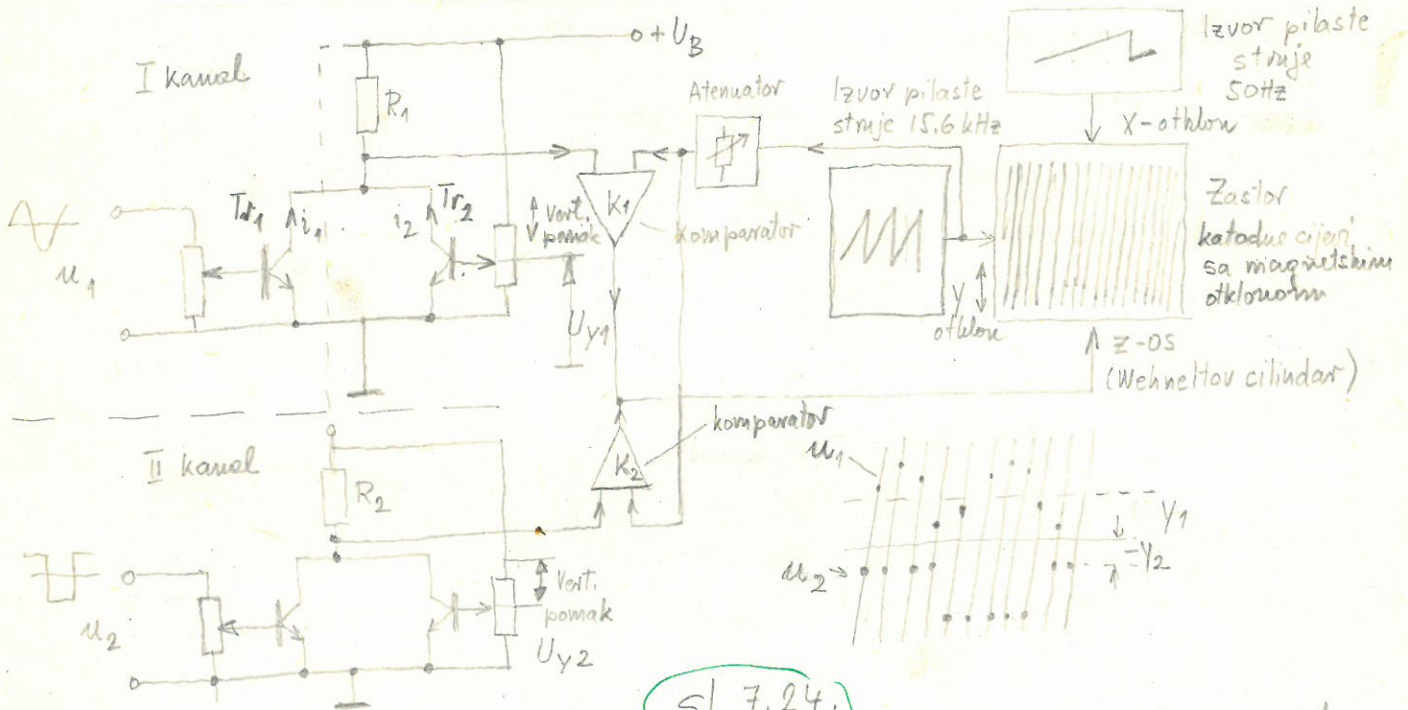 I kanal
+ U_B
R_1
Atenuator
Izvor pilaste
struje 15.6 kHz
Izvor pilaste
struje
50Hz
X-otklon
Tr_1
i_1
i_2
Tr_2
u_1
Vert.
pomak
U_y1
K1
komparator
Y
otklon
Zastor
katodne cijevi
sa magnetskim
otklonom
Z-OS
(Wehneltov cilindar)
II kanal
R_2
K_2
komparator
u_2
Vert.
pomak
U_y2
u_1
Y_1
-Y_2
u_2
sl. 7.24.